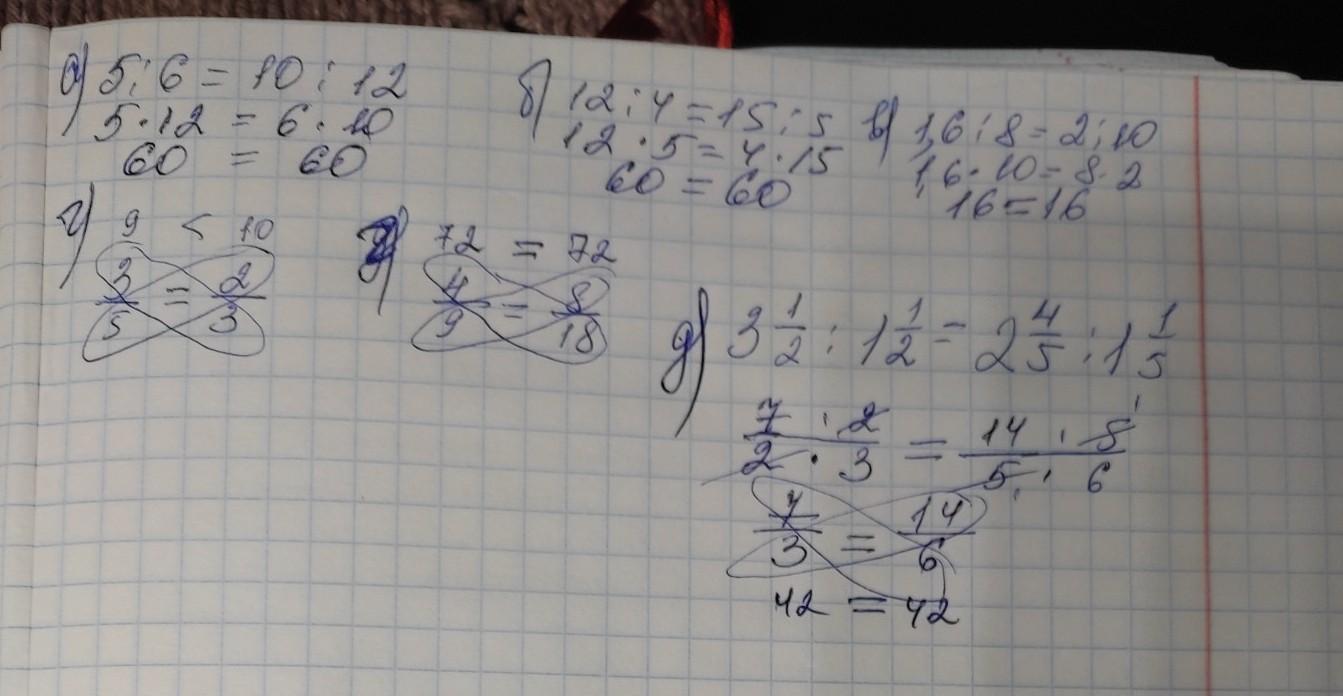 а) 5 : 6 = 10 : 12
5 · 12 = 6 · 10
60 = 60
б) 12 : 4 = 15 : 5
12 · 5 = 4 · 15
60 = 60
в) 1,6 : 8 = 2 : 10
1,6 · 10 = 8 · 2
16 = 16
г) 9 < 10
3/5 = 2/3
72 = 72
4/9 = 8/18
д) 3 1/2 : 1 1/2 = 2 4/5 : 1 1/5
7 · 2 / 2 · 3 = 14 · 5 / 5 · 6
7/3 = 14/6
42 = 42